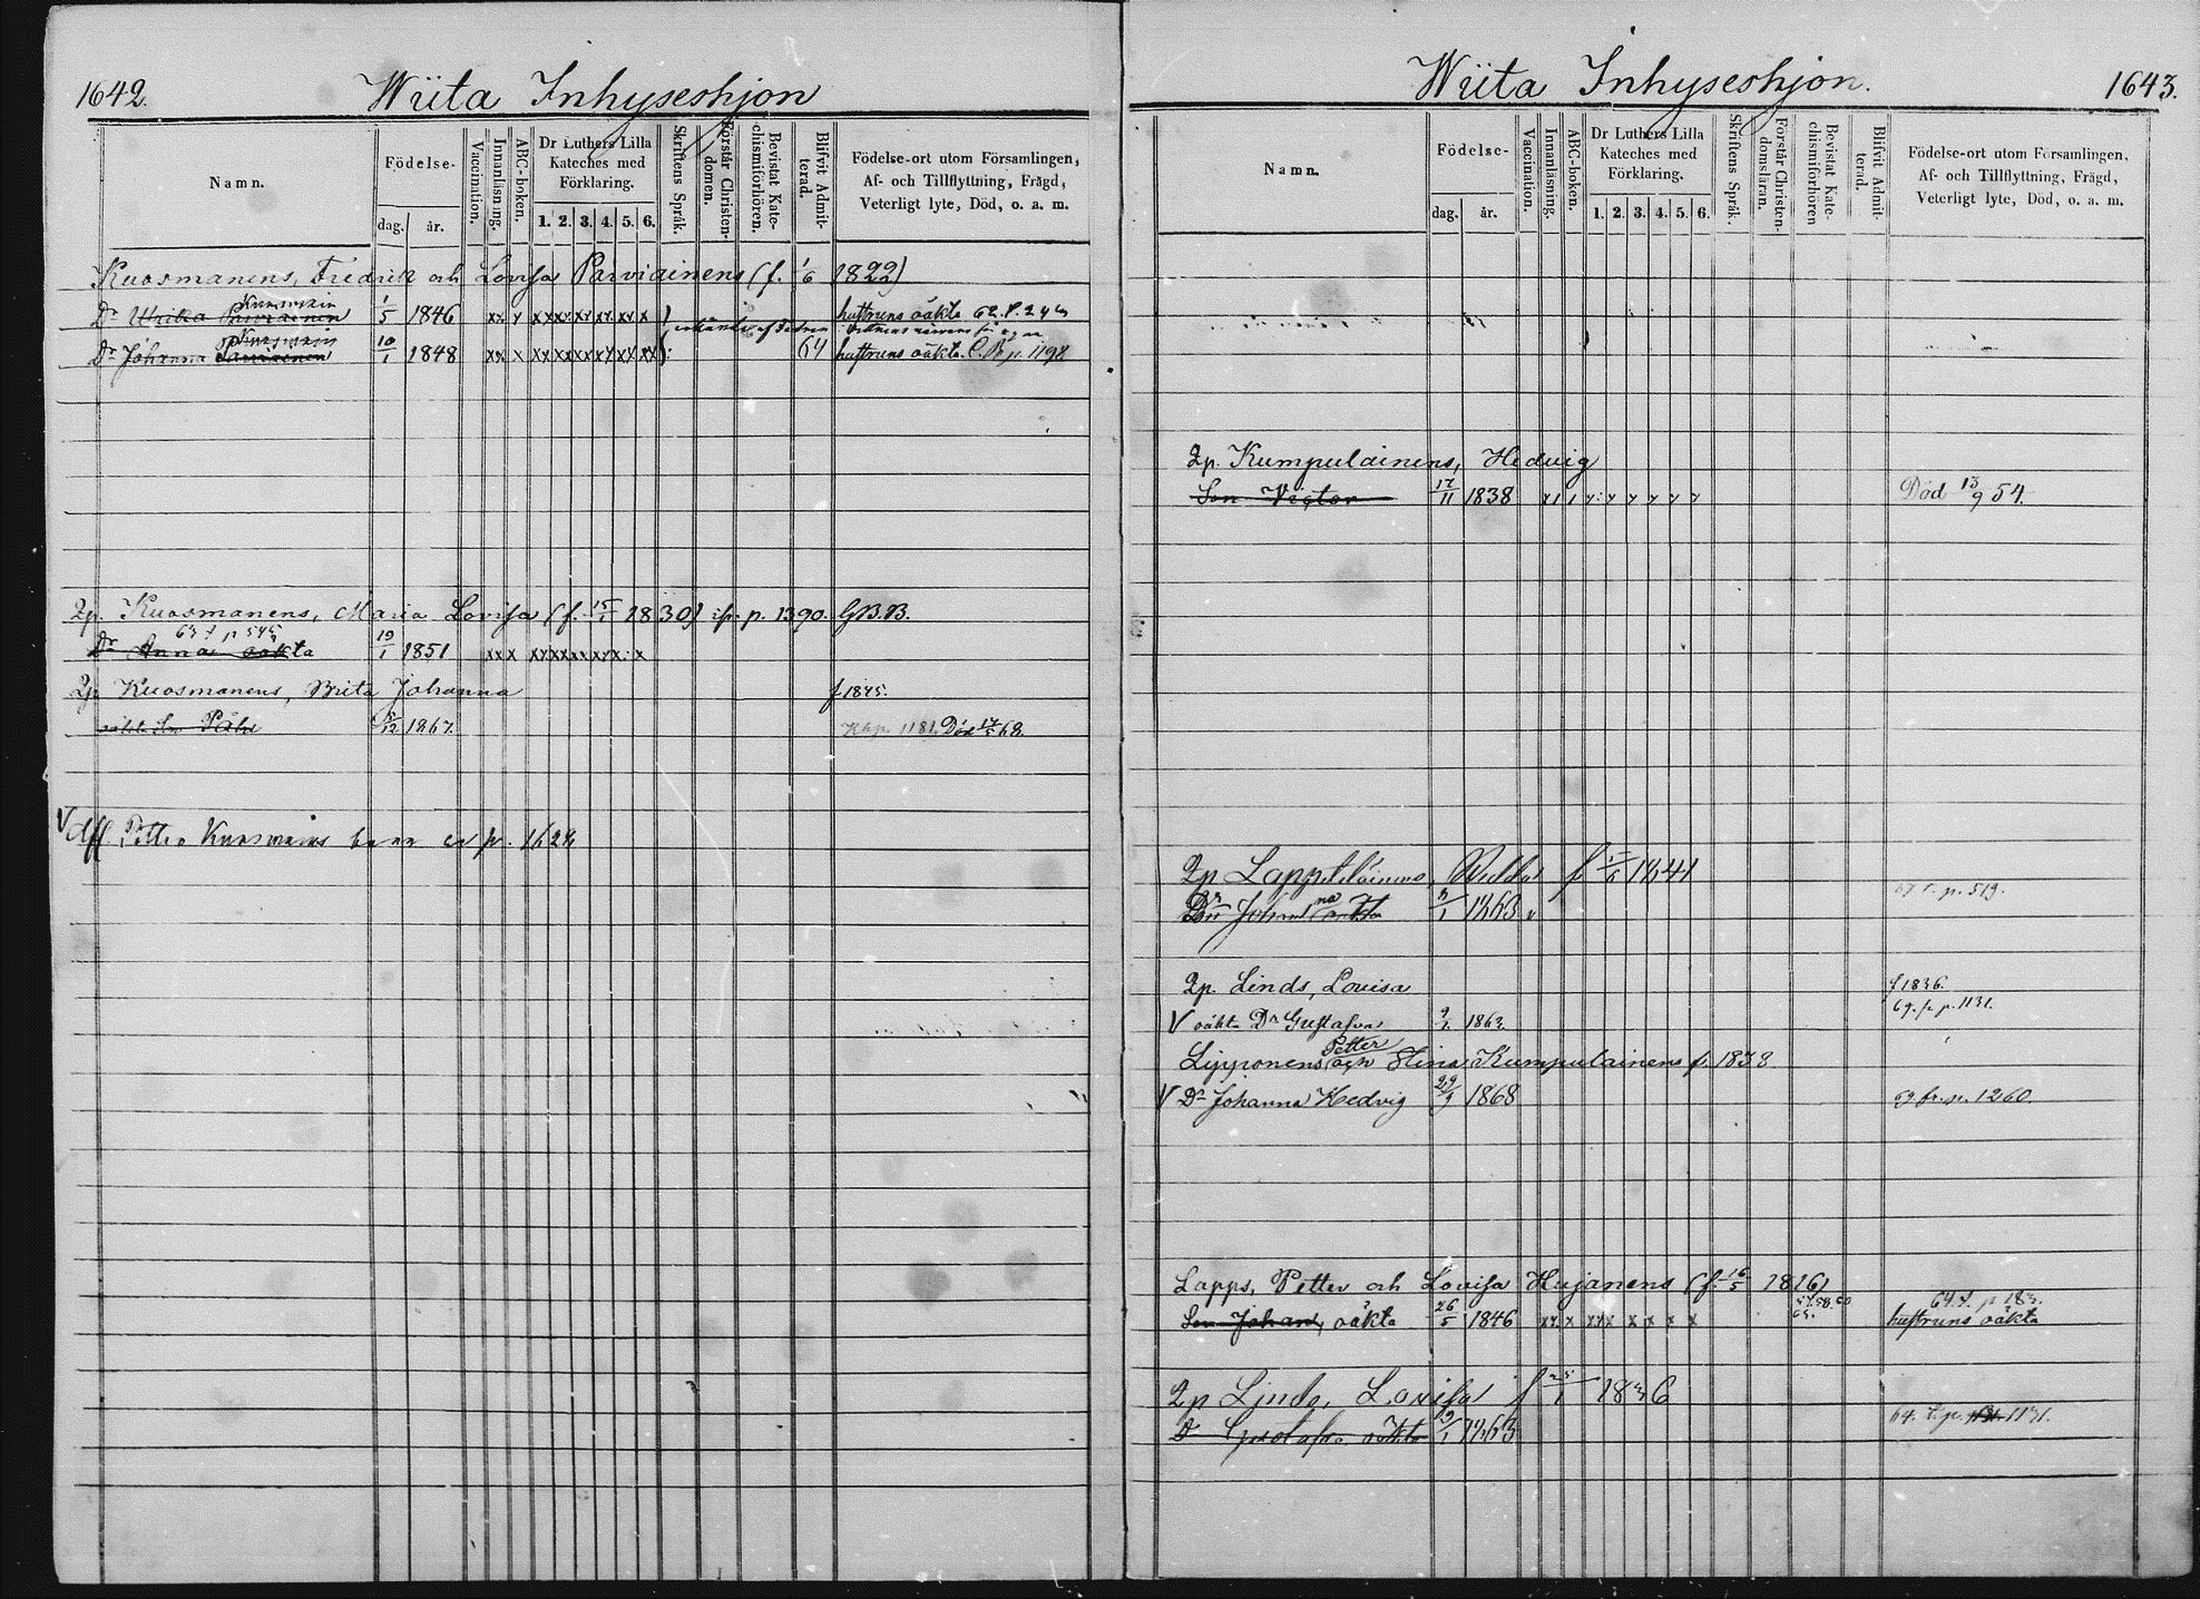 1642.
Wiita Inhyseshjon
Namn.
Födelse-
dag.
år.
Vaccination.
Innanläsning.
ABC-boken.
Dr Luthers Lilla
Kateches med
Förklaring.
1. 2. 3. 4. 5. 6.
Skriftens Språk.
Förstår Christen-
domen.
Bevistat Kate-
chismiförhören.
Blifvit Admit-
terad.
Födelse-ort utom Församlingen,
Af- och Tillflyttning, Frägd,
Veterligt lyte, Död, o. a. m.
Kuosmanens, Fredrik och Lovisa Parviainens (f. 1/6 1822)
Kuosmain
Dr Ulrika Parviainen 1/5 1846 hustruns oäkta
Kuosmain
Dr Johanna Parviainen 10/1 1848 64 hustruns oäkta. p. 1198
Qp. Kuosmanens, Maria Lovisa (f. 15/1 1830) p. 1390. GB.B.
Dr Anna oäkta 19/1 1851
Qp Kuosmanens, Brita Johanna f 1845.
oäkt. Son Påhl 5/12 1867. 1181. Död 68.
V dfl Petter Kuosmains barn p. 1624
1643.
Wiita Inhyseshjon.
Namn.
Födelse-
dag.
år.
Vaccination.
Innanläsning.
ABC-boken.
Dr Luthers Lilla
Kateches med
Förklaring.
1. 2. 3. 4. 5. 6.
Skriftens Språk.
Förstår Christen-
domsläran.
Bevistat Kate-
chismiförhören
Blifvit Admit-
terad.
Födelse-ort utom Församlingen,
Af- och Tillflyttning, Frägd,
Veterligt lyte, Död, o. a. m.
Qp. Kumpulainens, Hedvig
Son Victor 17/11 1838 Död 13/9 54.
Qp f 1841
p. 519.
Dr Johanna 1863
Qp. Linds, Lovisa f 1836.
69. fr p. 1131.
V oäkta Dr Gustafva 9/1 1863
Petter
Lipponens och Stina Kumpulainens f. 1838.
V Dr Johanna Hedvig 29/9 1868 69 fr. p. 1260.
Lapps, Petter och Lovisa Hujanens (f. 16/5 1826)
64 p 183.
Son Johan, oäkta 26/5 1846 hustruns oäkta
Qp Linds, Lovisa f 25/1 1836
Dr Gustafva oäkta 9/1 1863 1131.